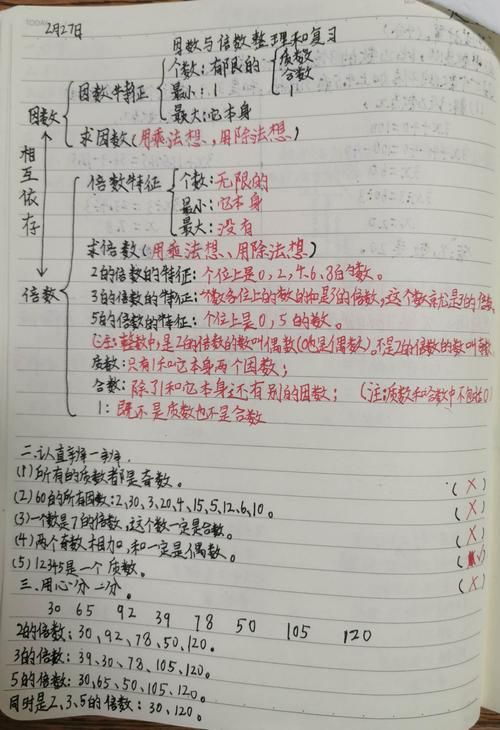 2月27日
因数与倍数整理和复习
因数
因数特征
个数:有限的
质数
合数
1
最小:1
最大:它本身
求因数(用乘法想、用除法想)
相互依存
倍数
倍数特征
个数:无限的
最小:它本身
最大:没有
求倍数(用乘法想、用除法想)
2的倍数的特征:个位上是0,2,4,6,8的数。
3的倍数的特征:一个数各位上的数的和是3的倍数,这个数就是3的倍数。
5的倍数的特征:个位上是0,5的数。
(注:整数中,是2的倍数的数叫偶数(0也是偶数)。不是2的倍数的数叫奇数
质数:只有1和它本身两个因数;
合数:除了1和它本身还有别的因数; (注:质数和合数中不包括0)
1:既不是质数也不是合数
二.认真辨一辨.
(1)所有的质数都是奇数。 (×)
(2)60的所有因数:2,30,3,20,4,15,5,12,6,10。 (×)
(3)一个数是7的倍数,这个数一定是合数。 (×)
(4)两个奇数相加,和一定是偶数。 (√)
(5)12345是一个质数。 (×)
三.用心分一分。
30 65 92 39 78 50 105 120
2的倍数:30、92、78、50、120。
3的倍数:39、30、78、105、120。
5的倍数:30、65、50、105、120。
同时是2、3、5的倍数:30、120。